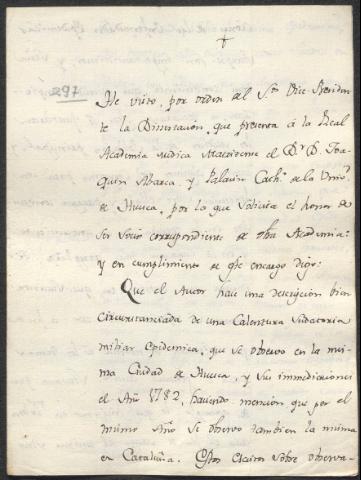 +
297
He visto, por orden del Sor. Vice-Presiden-
te la Disertacion, que presenta à la Real
Academia Medica Matritense el Dr. D. Joa-
quin Abarca, y Palacin Cathco. de la Univd.
de Huesca, por la que solicita el honor de
Ser Socio correspondiente de dha Academia:
y en cumplimiento de este encargo digo:
Que el Autor hace una descripcion bien
circunstanciada de una Calentura Sudatoria
miliar Epidemica, que se observo en la mis-
ma Ciudad de Huesca, y sus immediaciones
el Año 1782, haciendo mencion que por el
mismo Año se observo tambien la misma
en Cataluña. Estos Escritos sobre observa-